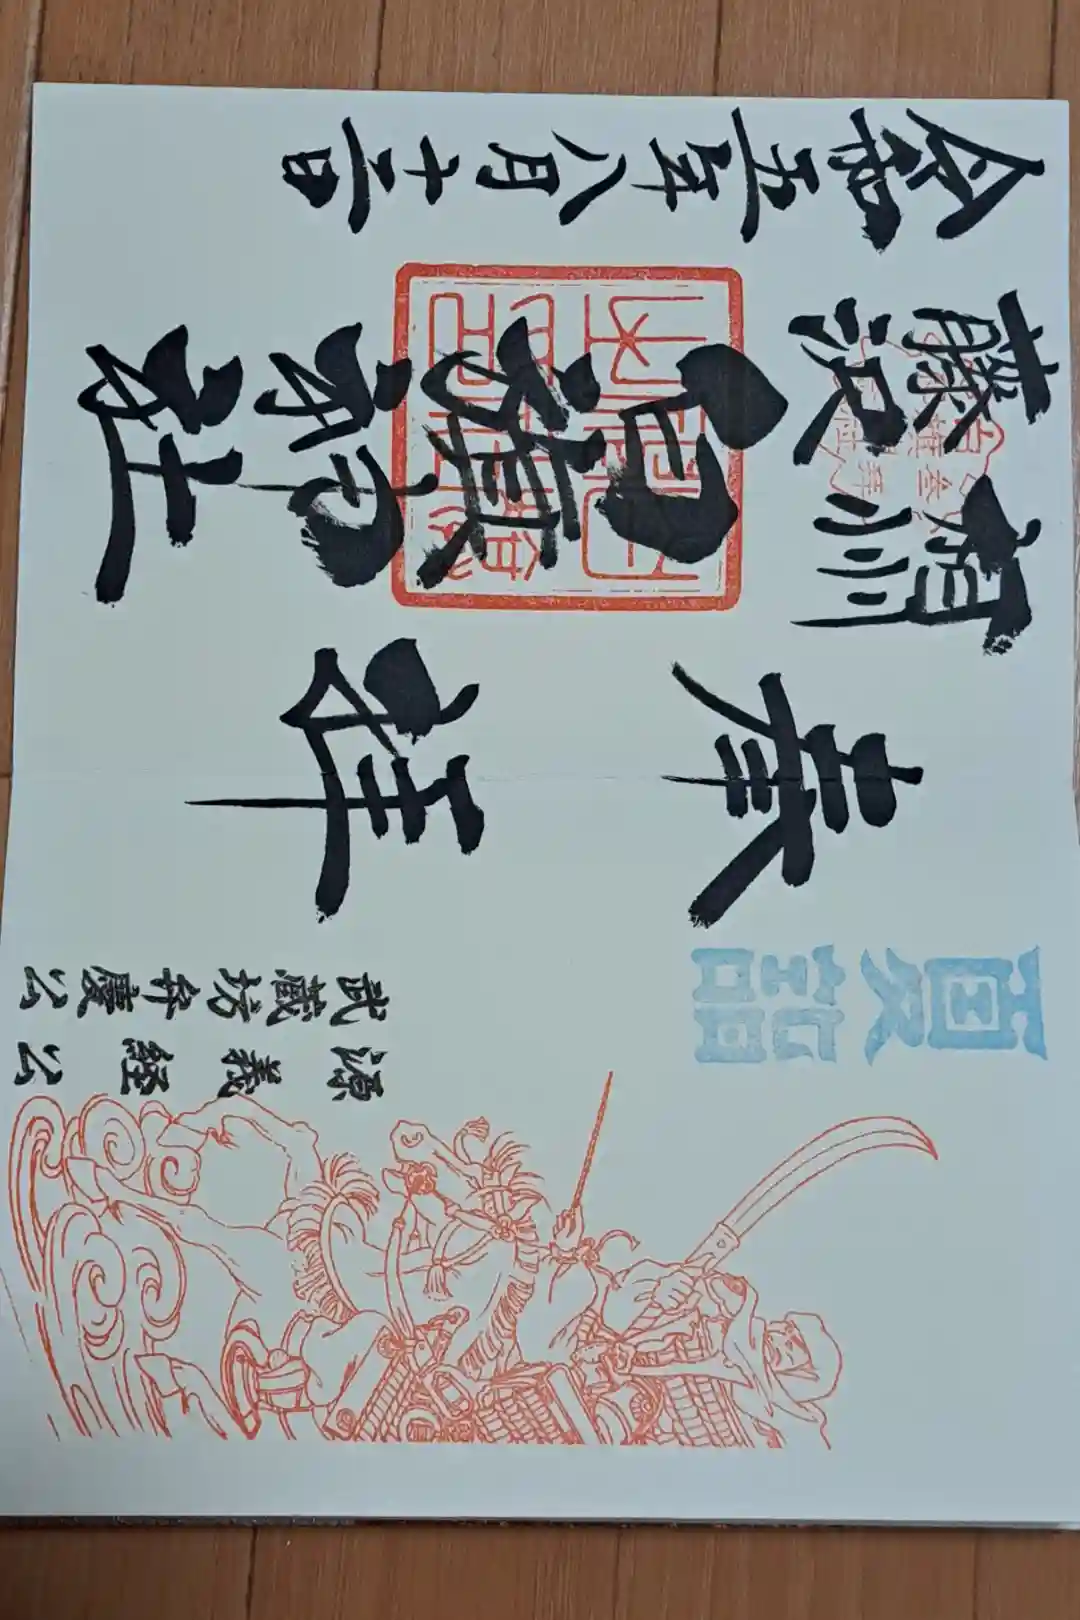 夏詣
源義経公
武蔵坊弁慶公
奉拝
相州
藤沢
白旗神社
令和五年八月十二日